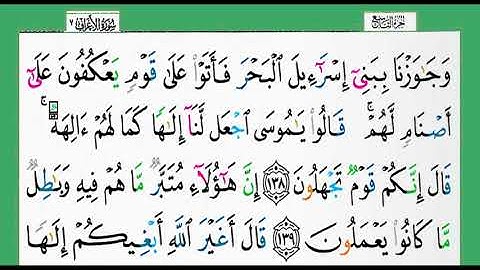 الجزء التاسع
سورة الأعراف ٧
وَجَٰوَزْنَا بِبَنِىٓ إِسْرَٰٓءِيلَ ٱلْبَحْرَ فَأَتَوْا۟ عَلَىٰ قَوْمٍۢ يَعْكُفُونَ عَلَىٰٓ
أَصْنَامٍۢ لَّهُمْ ۚ قَالُوا۟ يَٰمُوسَى ٱجْعَل لَّنَآ إِلَٰهًۭا كَمَا لَهُمْ ءَالِهَةٌۭ ۚ
قَالَ إِنَّكُمْ قَوْمٌۭ تَجْهَلُونَ ١٣٨ إِنَّ هَٰٓؤُلَآءِ مُتَبَّرٌۭ مَّا هُمْ فِيهِ وَبَٰطِلٌۭ
مَّا كَانُوا۟ يَعْمَلُونَ ١٣٩ قَالَ أَغَيْرَ ٱللَّهِ أَبْغِيكُمْ إِلَٰهًۭا